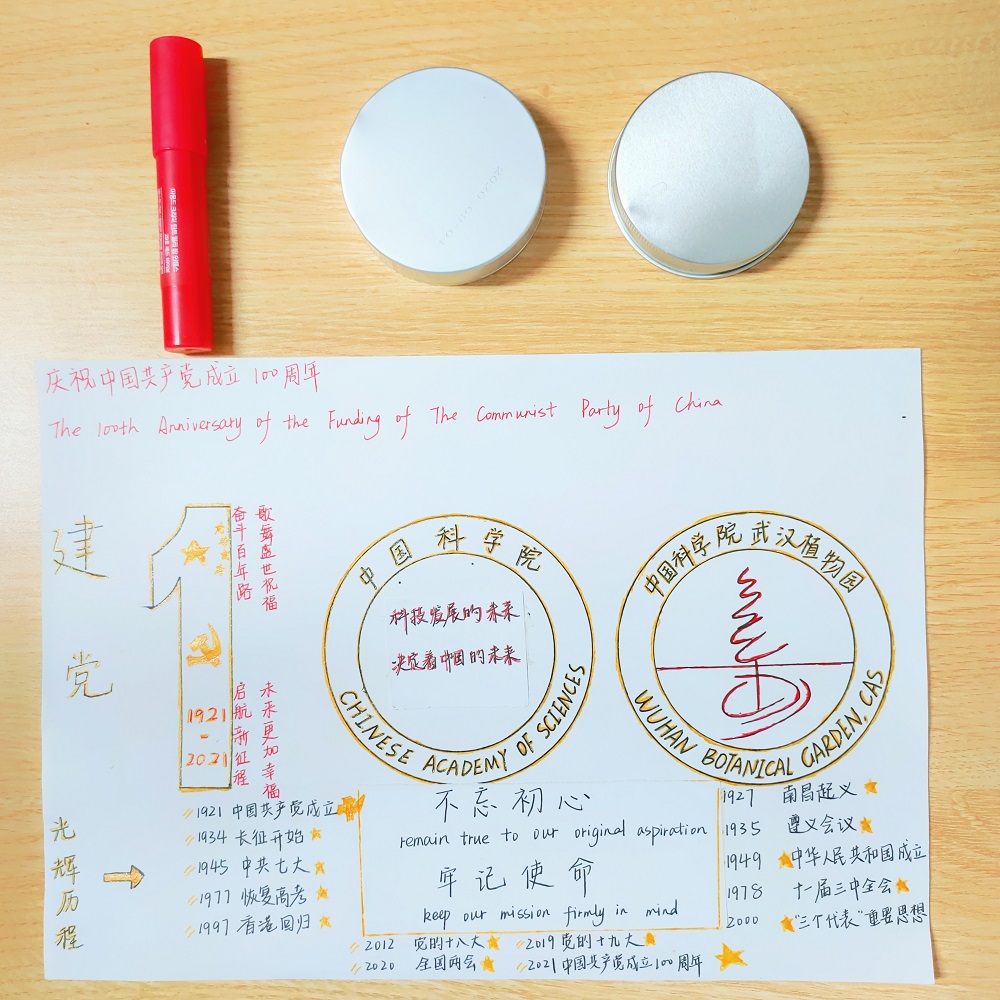 庆祝中国共产党成立100周年
The 100th Anniversary of the Funding of The Communist Party of China
建党
1921
-
2021
奋斗百年路
歌舞盛世祝福
启航新征程
未来更加幸福
中国科学院
科技发展的未来
决定着中国的未来
CHINESE ACADEMY OF SCIENCES
中国科学院武汉植物园
WUHAN BOTANICAL GARDEN, CAS
光辉历程
1921 中国共产党成立
1934 长征开始
1945 中共七大
1977 恢复高考
1997 香港回归
不忘初心
remain true to our original aspiration
牢记使命
keep our mission firmly in mind
1927 南昌起义
1935 遵义会议
1949 中华人民共和国成立
1978 十一届三中全会
2000 "三个代表"重要思想
2012 党的十八大
2019 党的十九大
2020 全国两会
2021 中国共产党成立100周年